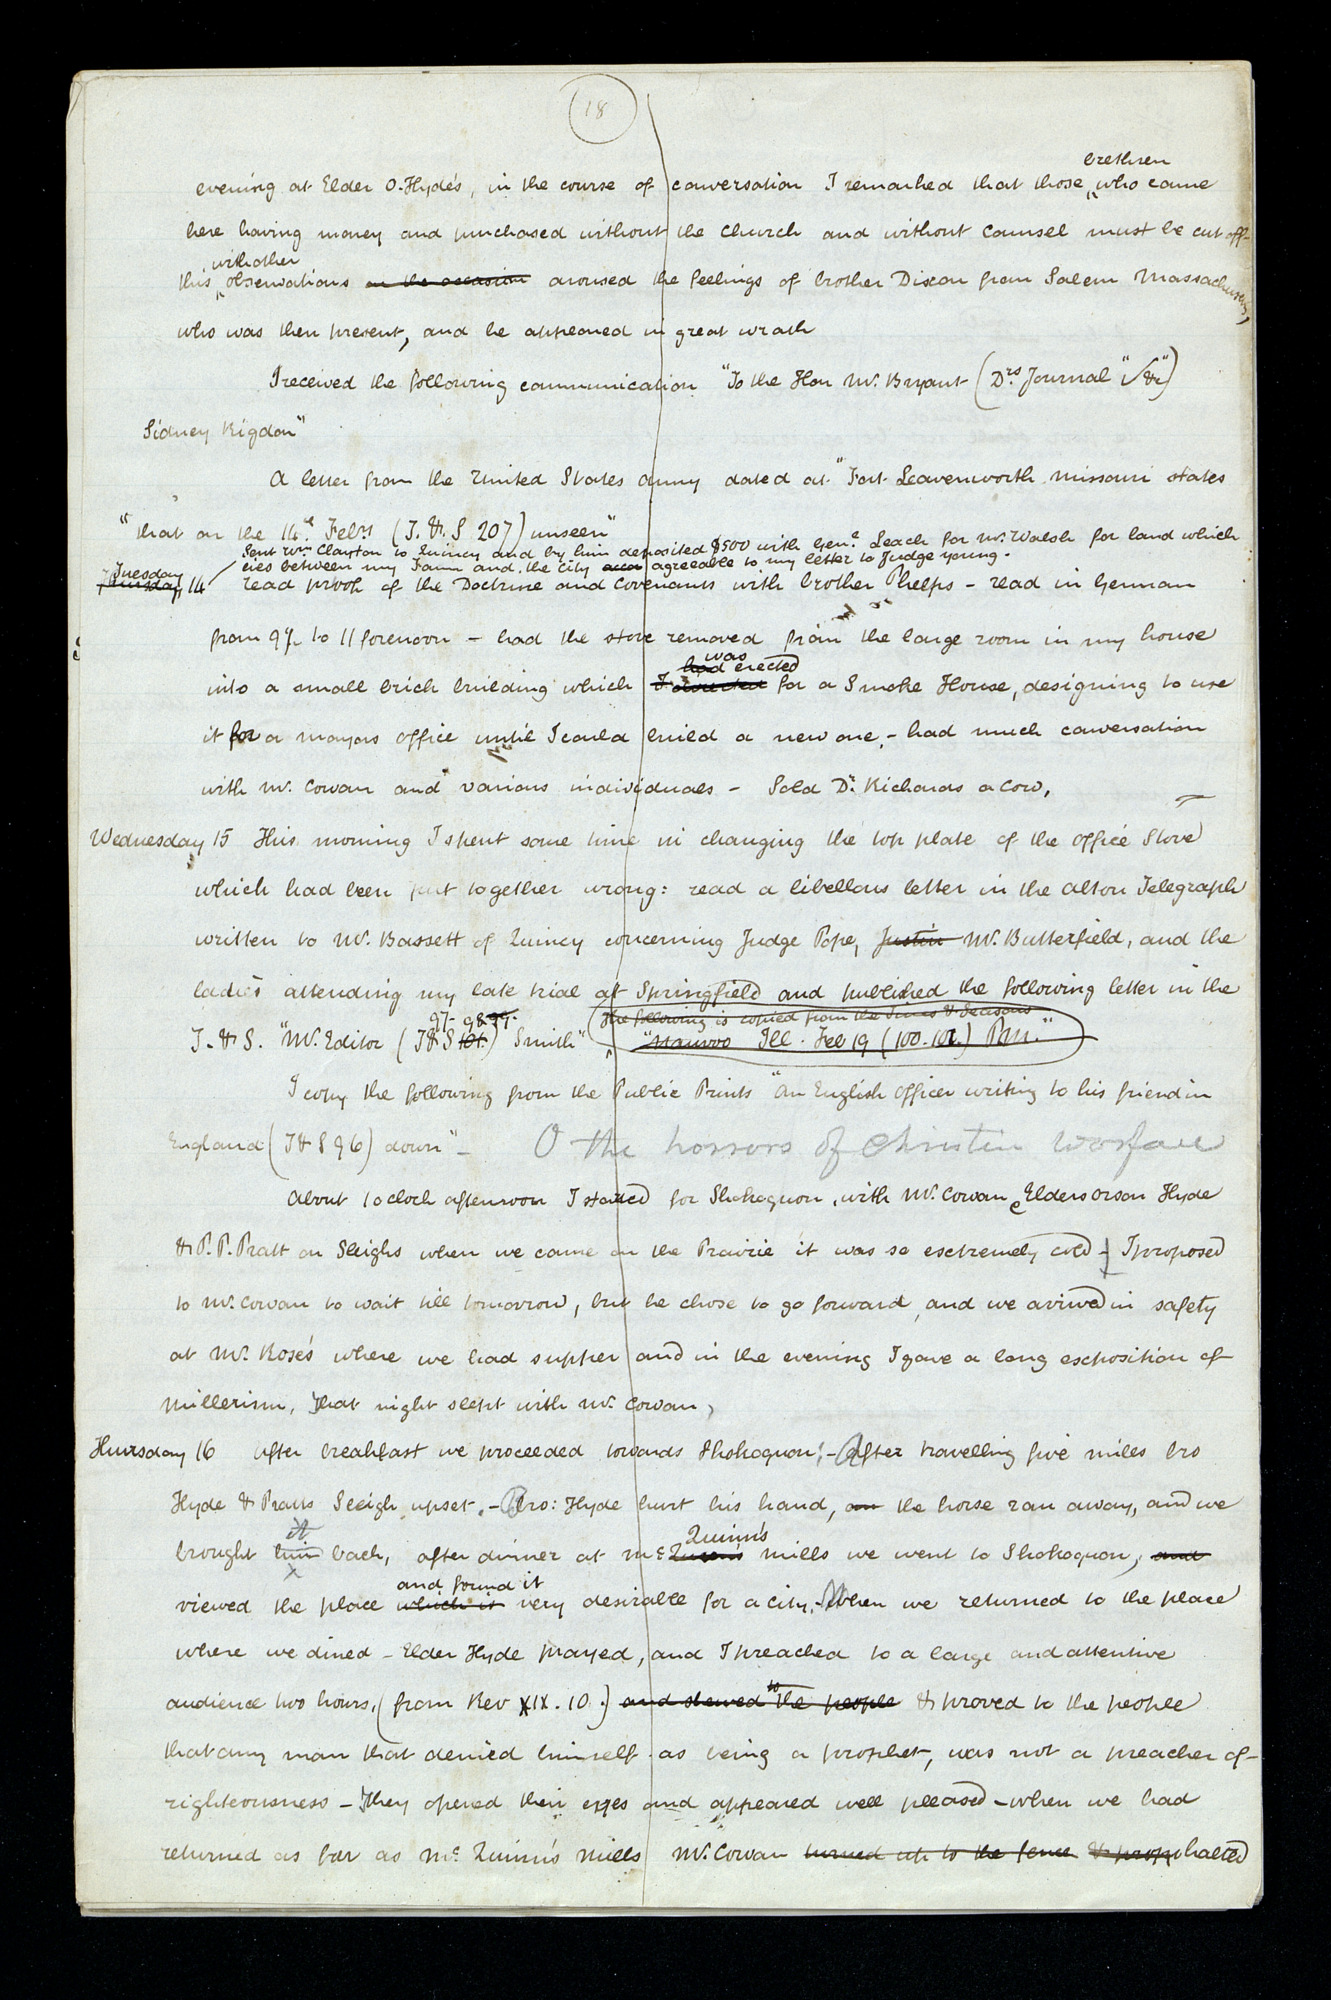 18
brethren
evening at Elder O. Hyde's, in the course of conversation I remarked that those who came
here having money and purchased without the Church and without Counsel must be cut off-
with other
this observations on the occasion aroused the feelings of brother Dixon from Salem Massachusetts,
who was then present, and he appeared in great wrath
I received the following communication "To the Hon Mr. Bryant (Drs Journal "√ &c")
Sidney Rigdon"
A letter from the United States army dated at "Fort Leavenworth Missouri states
"that on the 14th Feby (T. & S 207) unseen"
Sent Wm. Clayton to Quincy and by him deposited $500 with Genl. Leach for Mr. Walsh for land which
lies between my Farm and the City agreeable to my letter to Judge Young.
Tuesday
Thursday 14 read proof of the Doctrine and Covenants with brother Phelps - read in German
from 9½ to 11 forenoon - had the stove removed from the large room in my house
was
had erected
into a small brick building which I for a Smoke House, designing to use
it for a mayors office until I could build a new one, - had much conversation
with Mr. Cowan and various individuals - Sold Dr. Richards a Cow,
Wednesday 15 This morning I spent some time in changing the top plate of the office Stove
which had been put together wrong: read a libellous letter in the Alton Telegraph
written to Mr. Bassett of Quincy concerning Judge Pope, Justin Mr. Butterfield, and the
ladies attending my late trial at Springfield and published the following letter in the
97- 98 99. The following is copied from the Times & Seasons
T. & S. "Mr. Editor (T&S 101.) Smith" "Nauvoo Ill. Feb 19 (100-101.) Pm."
I copy the following from the Public Prints "An English officer writing to his friend in
England (T & S 96) down" - O the horrors of Christin Warfare
About 1 oclock afternoon I started for Shokoquon, with Mr. Cowan Elders Orson Hyde
& P. P. Pratt on Sleighs when we came on the Prairie it was so extremely cold - I proposed
to Mr. Cowan to wait till tomorrow, but he chose to go forward, and we arrived in safety
at Mr. Rose's where we had supper and in the evening I gave a long exposition of
Millerism, That night slept with Mr. Cowan,
Thursday 16 After breakfast we proceeded towards Shokoquon, - After travelling five miles bro
Hyde & Pratts Sleigh upset, - Bro: Hyde hurt his hand, the horse ran away, and we
it Quinn's
brought him back, after dinner at Mc Queen's mills we went to Shokoquon, and
and found it
viewed the place which is very desirable for a city, - When we returned to the place
where we dined - Elder Hyde prayed, and I preached to a large and attentive
to
audience two hours, (from Rev XIX. 10.) and shewed the people & proved to the people
that any man that denied himself as being a prophet, was not a preacher of
righteousness - They opened their eyes and appeared well pleased - when we had
returned as far as Mc Quinn's Mills Mr. Cowan turned up to the fence & prop halted